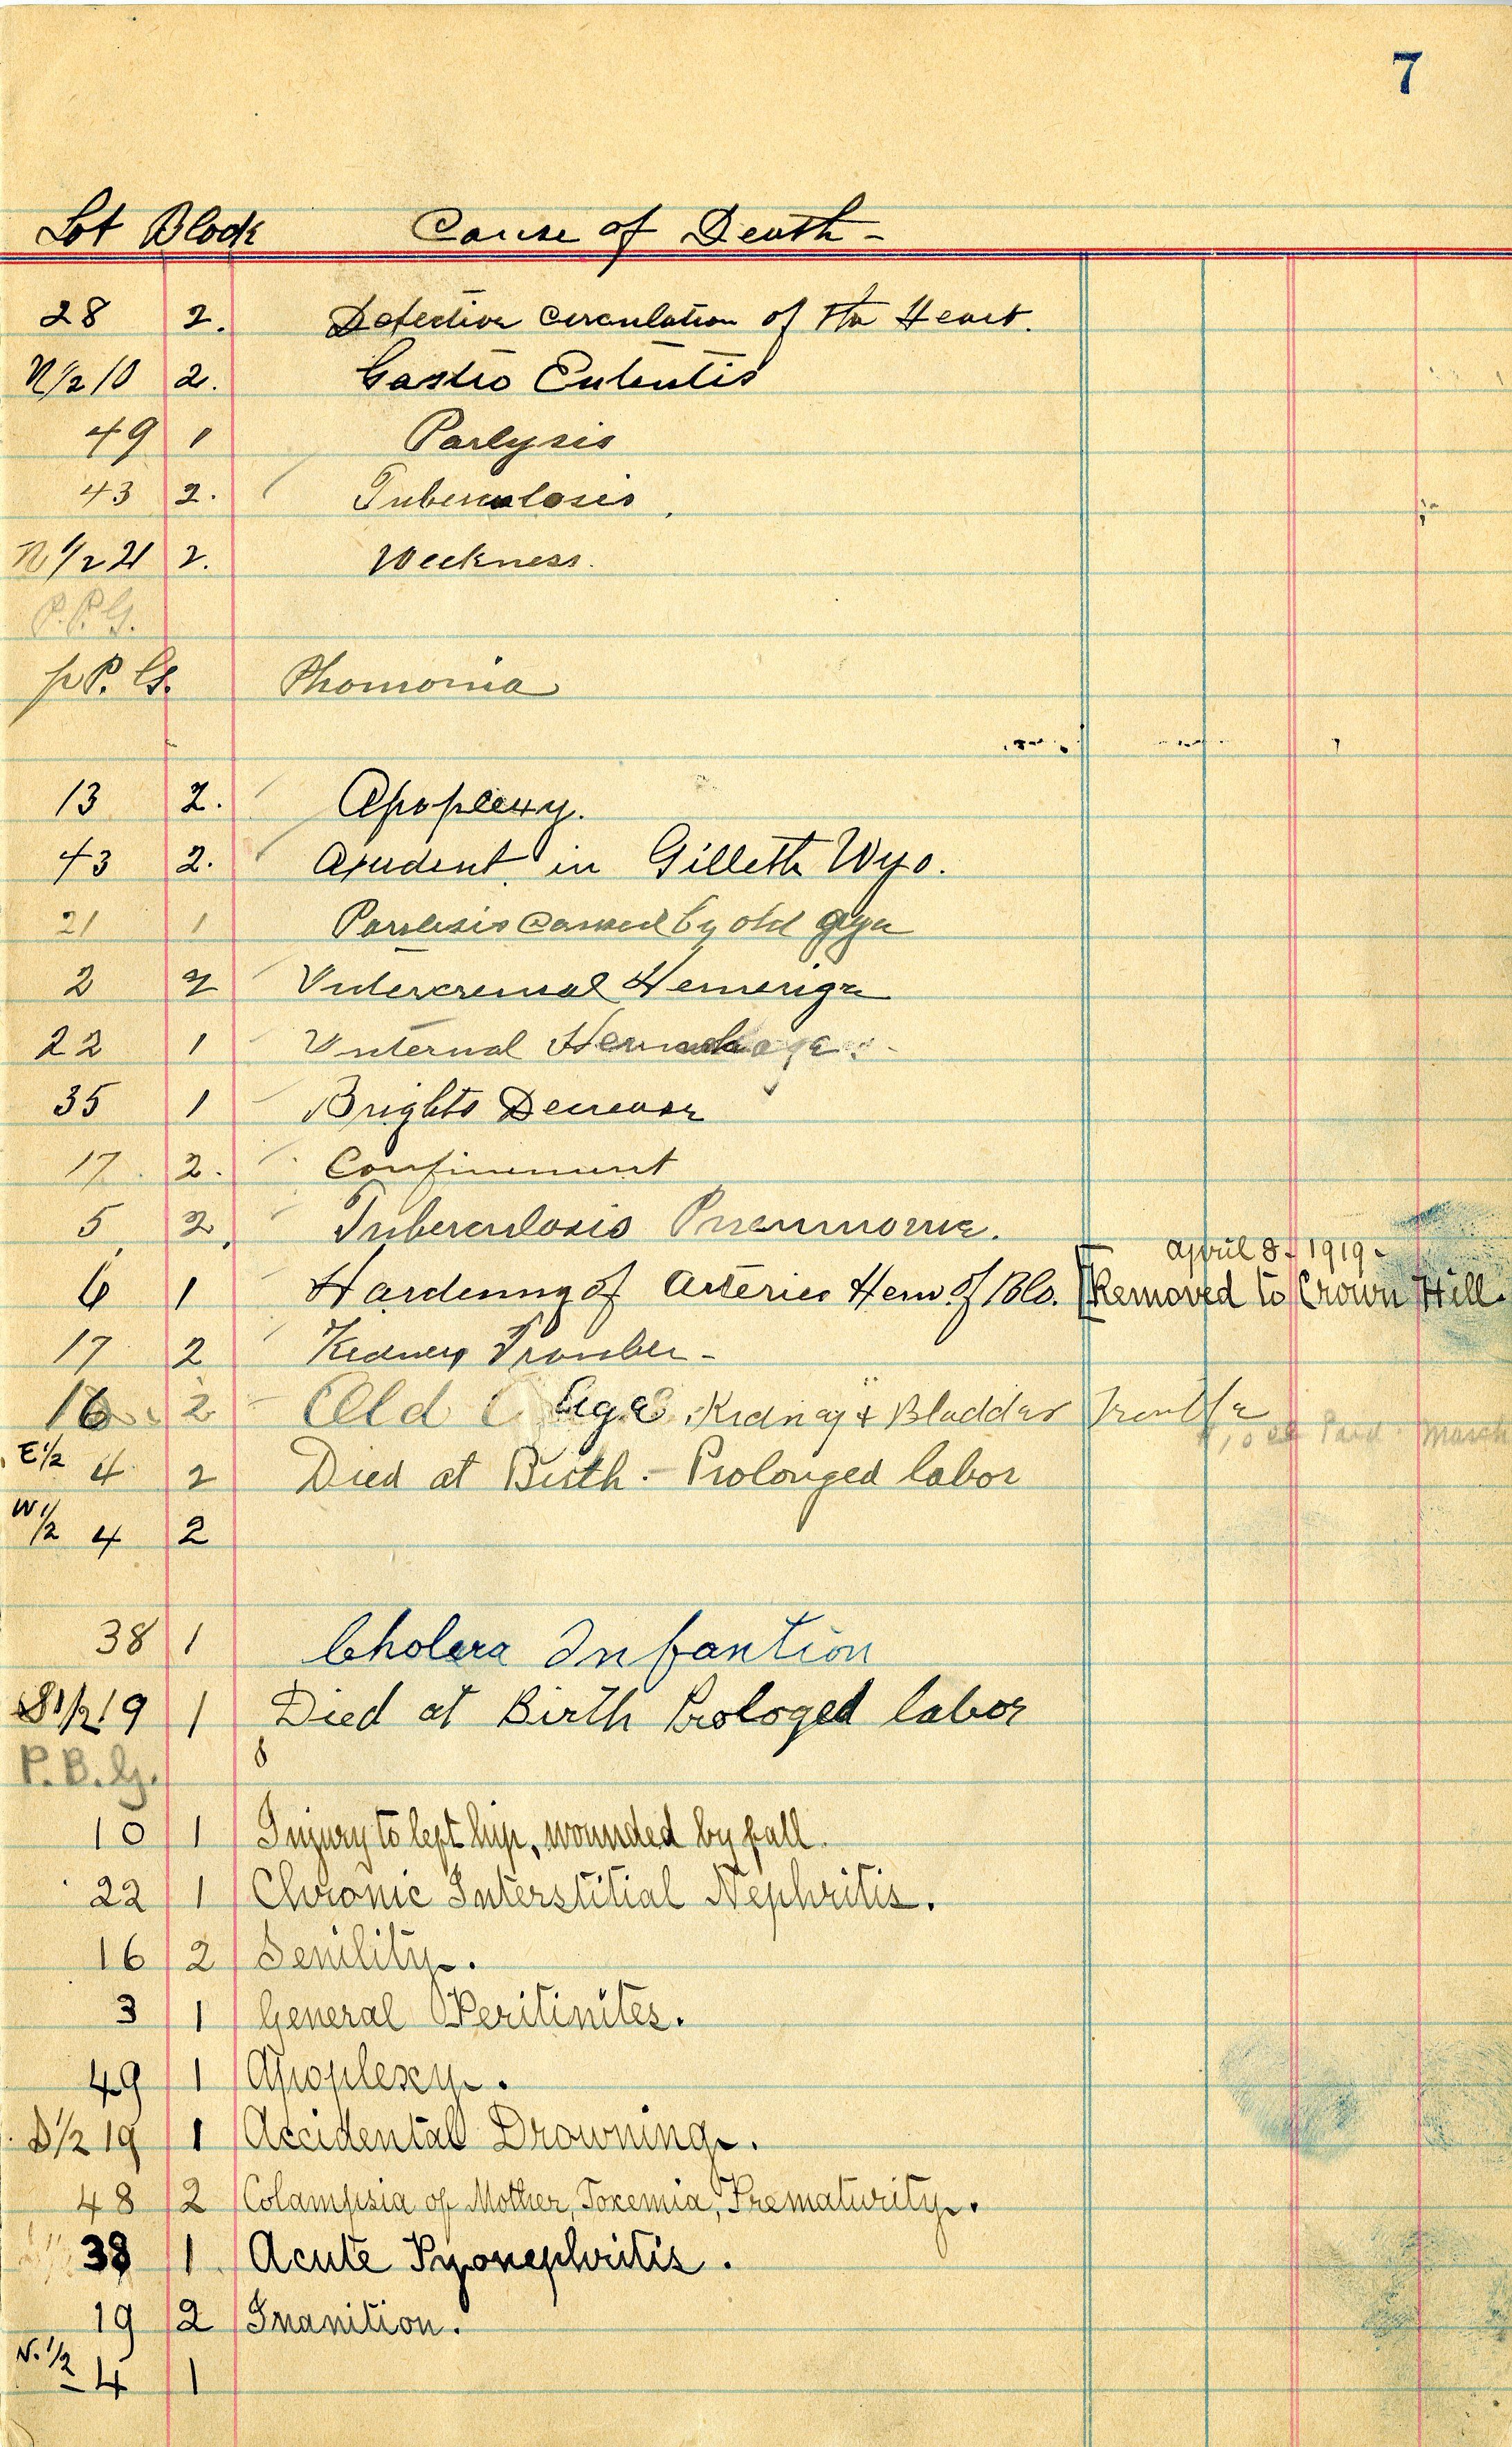 7
Lot Block Cause of Death -
28 2. Defective Cerculation of the Heart.
N 1/2 10 2. Gastro Enteritis
49 1 Parlysis
43 2. Tuberculosis.
N 1/2 21 2. Weekness.
P.P.G.
P.P. G. Phomonia
13 2. Apoplexy.
43 2. Axudent in Gillette Wyo.
21 1 caused by old age
2 2
22 1 Internal
35 1 Brights
17 2. Confinement
5 2. Tuberculosis Pneumonia.
April 8 - 1919 -
6 1 Hardening of Arteries Hem. of Blo. [Removed to Crown Hill.
17 2 Kidney Trouble -
16 2 Old Age, Kidney & Bladder Trouble
Paid March
E 1/2 4 2 Died at Birth. - Prolonged labor
W 1/2 4 2
38 1 Cholera Infantion
S 1/2 19 1 Died at Birth Prologed labor
P.B.G.
10 1 Injury to left hip, wounded by fall.
22 1 Chronic Interstitial Nephritis.
16 2 Senility.
3 1 General Peritinites.
49 1 Apoplexy.
S 1/2 19 1 Accidental Drowning.
48 2 Colampsia of Mother, Toxemia, Prematurity.
38 1 Acute Pyonephritis.
19 2 Inanition.
N. 1/2 4 1